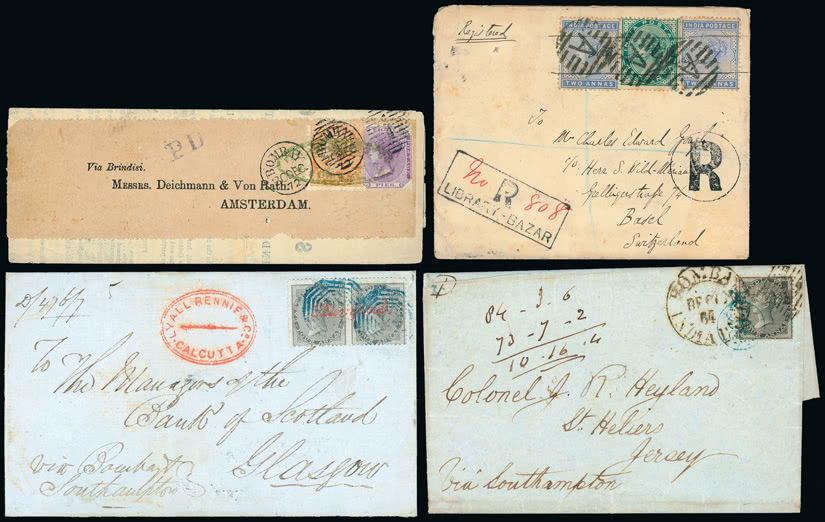 PD
Via Brindisi.
MESSRS. Deichmann & Von Rath
AMSTERDAM.
PIES
Registered
INDIA POSTAGE
TWO ANNAS
INDIA POSTAGE
TWO ANNAS
To
Mr Charles Edward
c/o Herr S.
Basel
Switzerland
R
No R 808
LIBRARY-BAZAR
D/4767
LYALL RENNIE & Co
CALCUTTA
To
The Managers of the
Bank of Scotland
Glasgow
via Bombay &
Southampton
BOMBAY
INDIA
84 - 3. 6
73 - 7 - 2
10. 16. 4
Colonel J. R. Heyland
St. Heliers
Jersey
Via Southampton